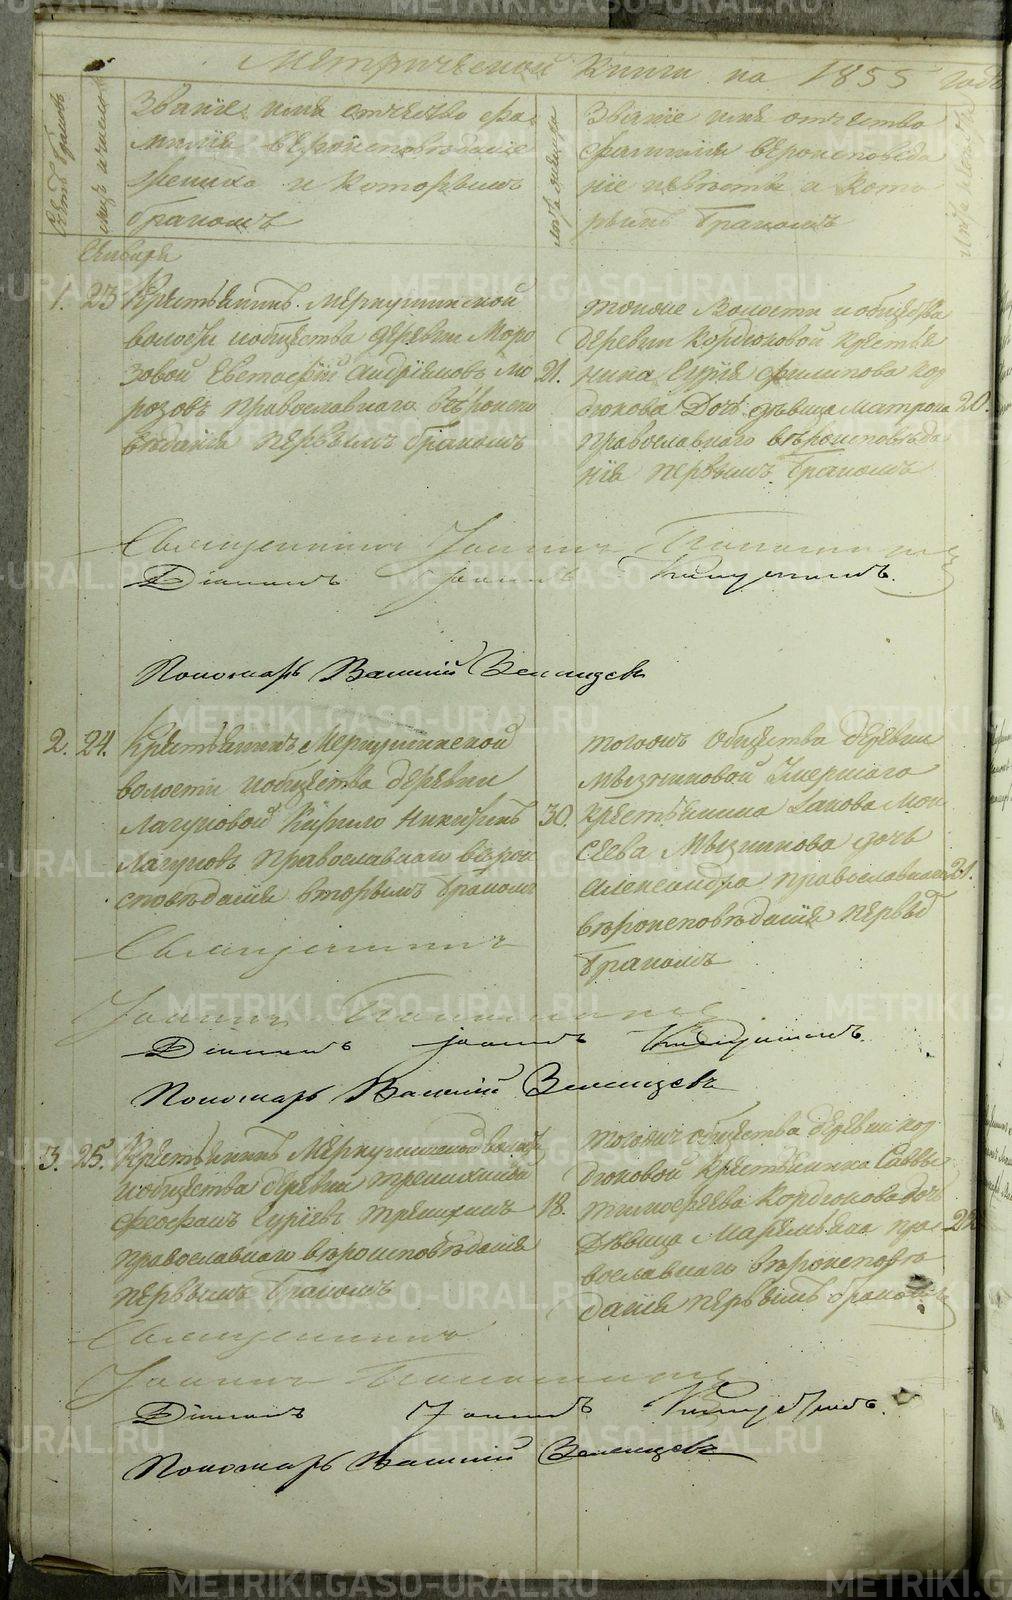 Метрической Книги на 1855 годъ
Счетъ браковъ
Мѣс. и число
Званіе, имя отчество фа-
миліе вѣроисповѣданіе
жениха и которымъ
бракомъ
Лѣта жениха
Званіе имя отчество
фамилія вѣроисповѣда
ніе невѣсты и кото
рымъ бракомъ
Лѣта невѣсты
Января
1. 23 Крестьянинъ Меркушинской
волости и общества деревни Моро
зовой Евстафій Андріяновъ Мо
розовъ православнаго вѣроиспо
вѣданія первымъ бракомъ
21.
тойже Волости и общества
деревни Кордюковой крестья
нина Гурія Филипова Кор
дюкова Дочь дѣвица Матрона
православнаго вѣроисповѣда
нія первымъ бракомъ
20.
Священникъ Іоаннъ
Діаконъ Іоаннъ
Пономарь Василій Зеленцовъ
2. 24. Крестьянинъ Меркушинской
волости и общества деревни
Лагуновой Кирило Никифоровъ
Лагуновъ православнаго вѣрои
сповѣданія вторымъ бракомъ
30.
тогожъ общества деревни
Мызниковой Умершаго
крестьянина Іакова Мои
сеева Мызникова дочь
Александра православнаго
вѣроисповѣданія первы
бракомъ
21.
Священникъ
Іоаннъ
Діаконъ Іоаннъ
Пономарь Василій Зеленцовъ
3. 25. Крестьянинъ Меркушинской волости
и общества деревни Трешихиной
Феофанъ Гуріевъ Трешихинъ
православнаго вѣроисповѣданія
первымъ бракомъ
18.
тогожъ общества деревни Кор
дюковой крестьянина Саввы
Тимофеева Кордюкова дочь
Дѣвица Маремьяна пра
вославнаго вѣроисповѣ
данія первымъ бракомъ
Священникъ
Іоаннъ
Діаконъ Іоаннъ
Пономарь Василій Зеленцовъ
METRIKI.GASO-URAL.RU